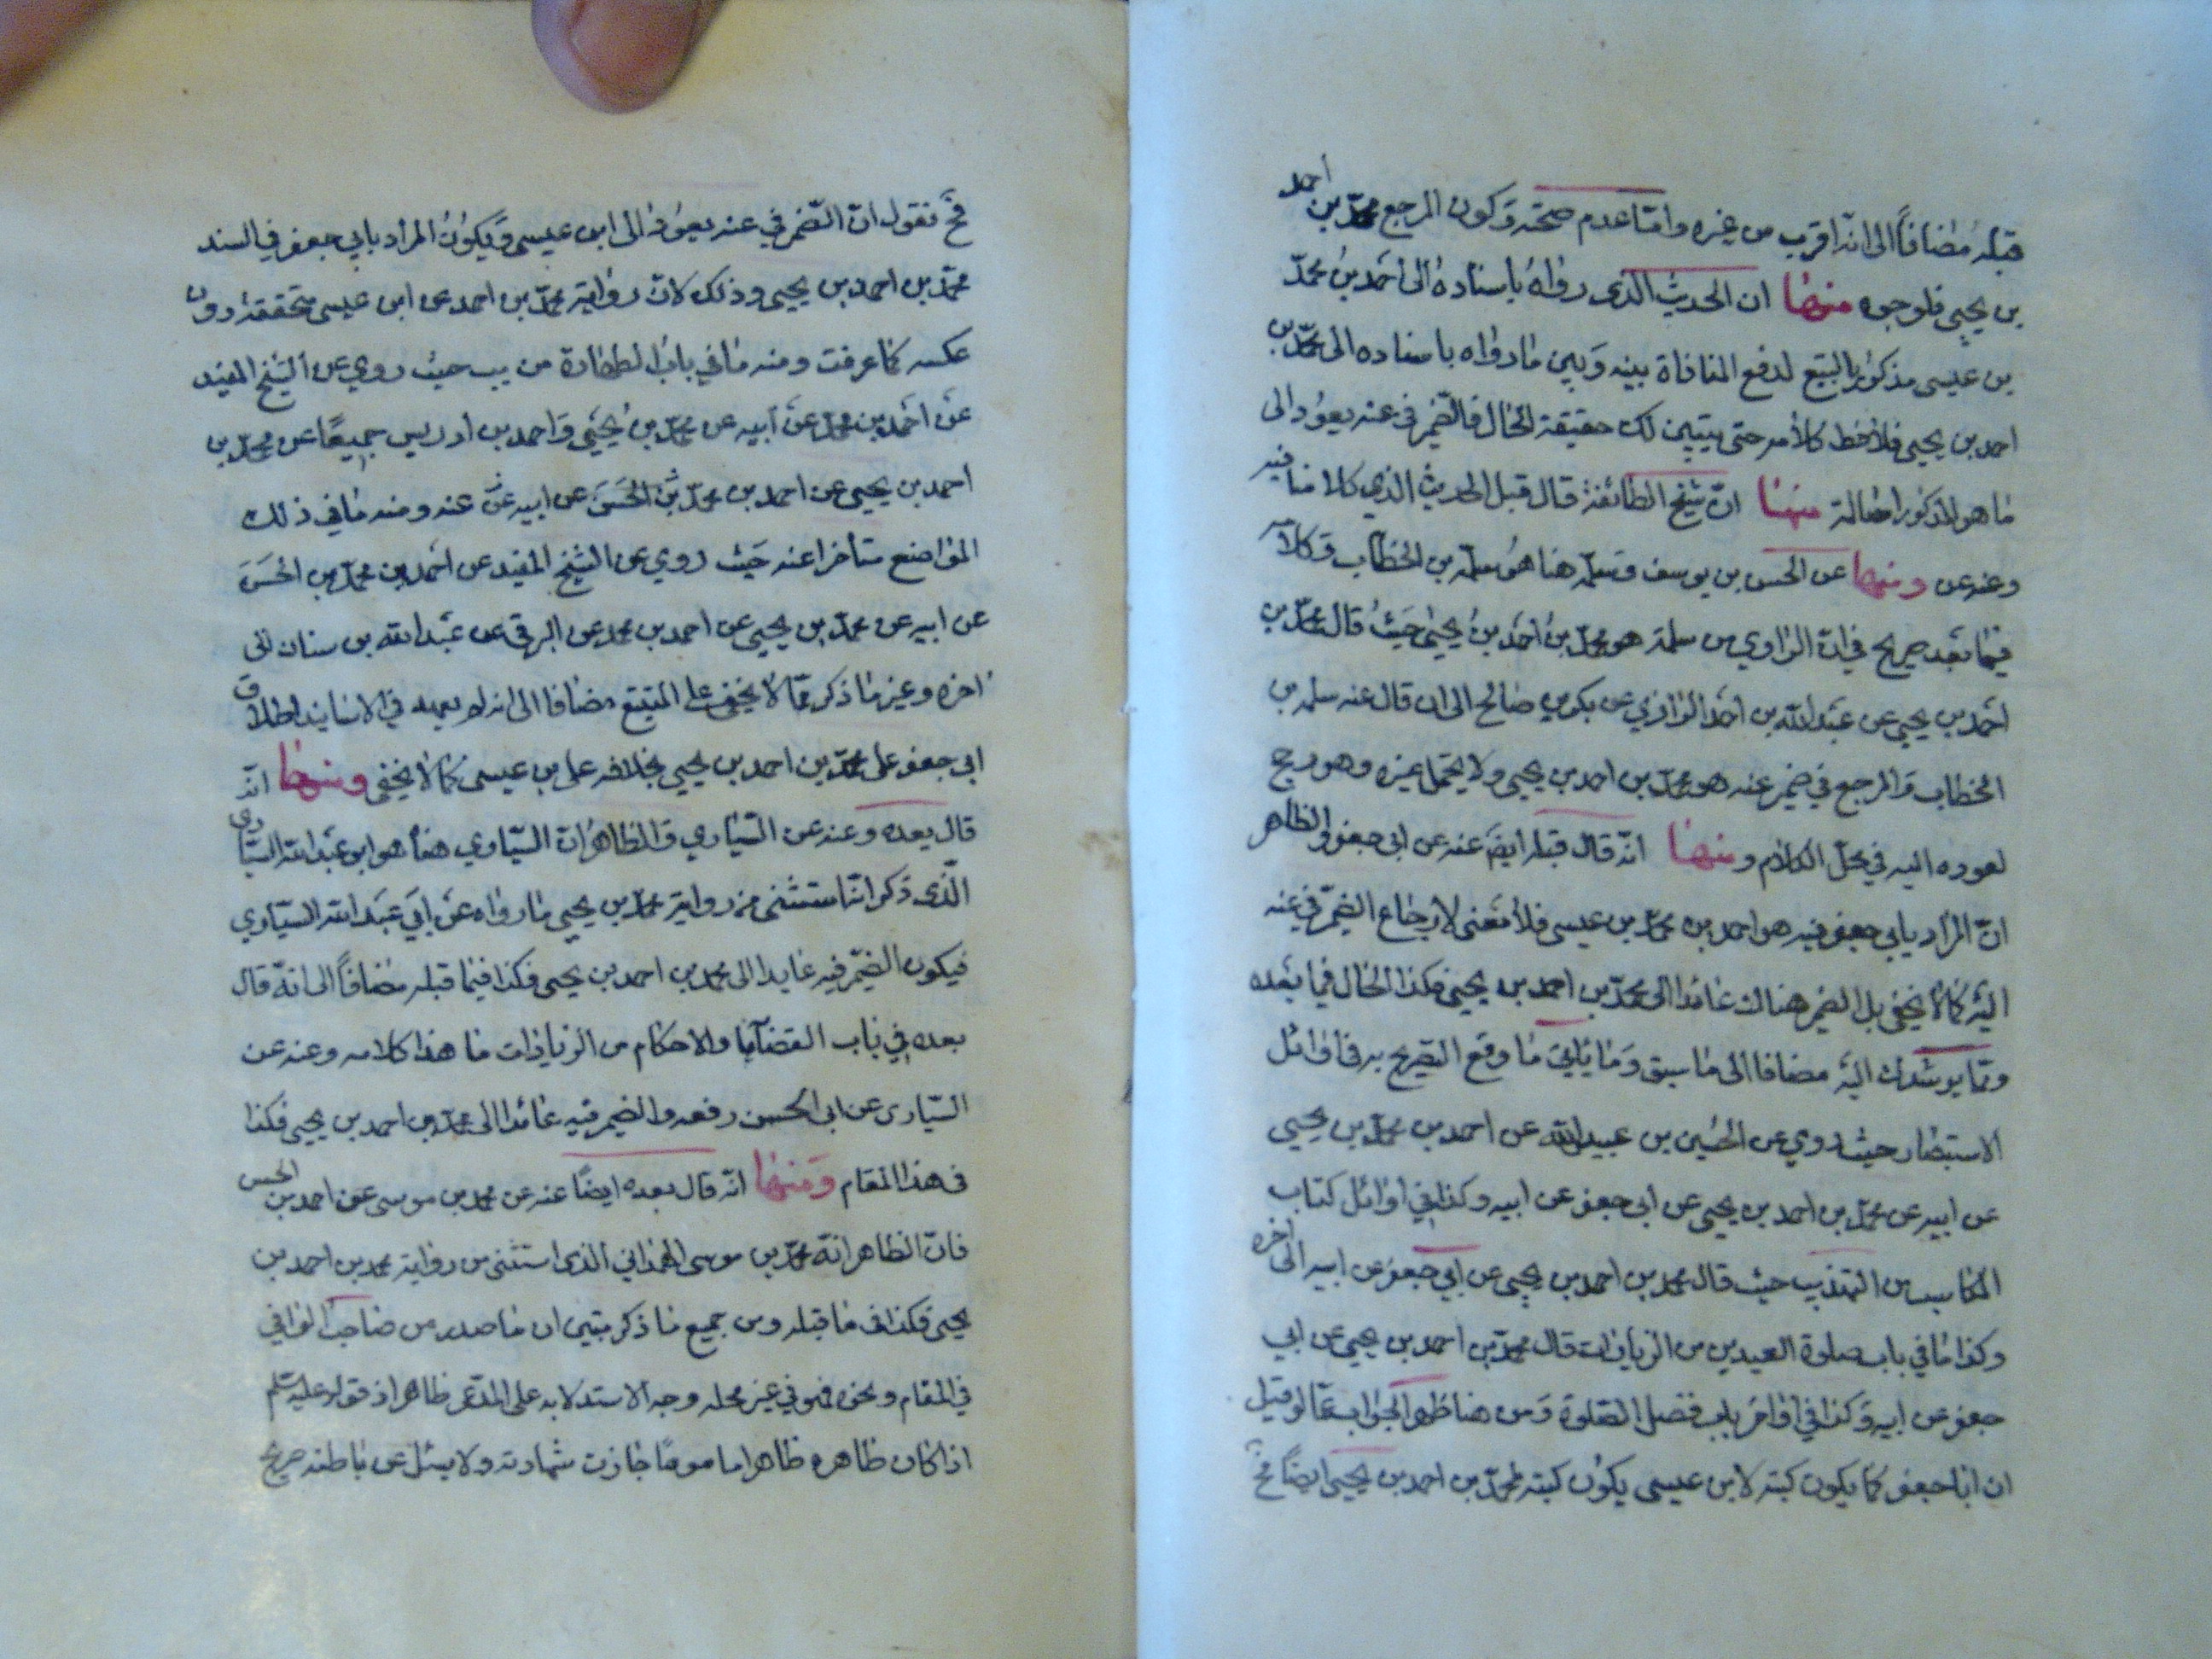 قبله مضافاً الى انه اقرب من غيره واما عدم صحته وكون المرجع محمد بن احمد
بن يحيى فلوجوه منها ان الحديث الذى رواه باسناده الى احمد بن محمد
بن عيسى مذكور بالتبع لدفع المنافاة بينه وبين ما رواه باسناده الى محمد بن
احمد بن يحيى فلاحظ كلامه حتى يتبين لك حقيقة الحال فالضمير فى عنه يعود الى
ما هو المذكور اصالة منها ان شيخ الطائفة قال قبل الحديث الذي كلامنا فيه
وعنه عن ومنها عن الحسن بن يوسف وسلمة هنا هو سلمة بن الخطاب وكلامه
فيما بعد صريح في ان الراوي من سلمة هو محمد بن احمد بن يحيى حيث قال محمد بن
احمد بن يحيى عن عبد الله بن احمد الرازي عن بكر بن صالح الى ان قال عنه سلمة بن
الخطاب والمرجع في ضمير عنه هو محمد بن احمد بن يحيى ولا يحتمل غيره وهو مرجح
لعوده اليه في محل الكلام ومنها انه قال قبله ايضا عنه عن ابى جعفر والظاهر
ان المراد بابي جعفر فيه هو احمد بن محمد بن عيسى فلا معنى لارجاع الضمير في عنه
اليه كما لا يخفى بل الضمير هناك عائدا الى محمد بن احمد بن يحيى فكذا الحال فيما بعده
ومما يرشدك اليه مضافا الى ما سبق وما يأتي ما وقع التصريح به في اوائل
الاستبصار حيث روي عن الحسين بن عبيد الله عن احمد بن محمد بن يحيى
عن ابيه عن محمد بن احمد بن يحيى عن ابى جعفر عن ابيه وكذا في اوائل كتاب
المكاسب من التهذيب حيث قال محمد بن احمد بن يحيى عن ابي جعفر عن ابيه الى اخره
وكذا ما في باب صلوة العيدين من الزيادات قال محمد بن احمد بن يحيى عن ابي
جعفر عن ابيه وكذا في اواخر باب فضل الصلوة ومن هنا ظهر الجواب عما لو قيل
ان ابا جعفر كما يكون كنية لابن عيسى يكون كنية لمحمد بن احمد بن يحيى ايضا فح
فح نقول ان الضمير في عنه يعود الى ابن عيسى ويكون المراد بابي جعفر في السند
محمد بن احمد بن يحيى وذلك لان رواية محمد بن احمد عن ابن عيسى متحققة دون
عكسه كما عرفت ومنه ما في باب الطهارة من يب حيث روي عن الشيخ المفيد
عن احمد بن محمد عن ابيه عن محمد بن يحيى واحمد بن ادريس جميعا عن محمد بن
احمد بن يحيى عن احمد بن محمد بن الحسن عن ابيه عن عنه ومنه ما في ذلك
المواضع متأخرا عنه حيث روي عن الشيخ المفيد عن احمد بن محمد بن الحسن
عن ابيه عن محمد بن يحيى عن احمد بن محمد عن البرقي عن عبد الله بن سنان الى
اخره وغير ما ذكر مما لا يخفى على المتتبع مضافا الى انه لم يعهد في الاسانيد اطلاق
ابى جعفر على محمد بن احمد بن يحيى بخلافه على بن عيسى كما لا يخفى ومنها انه
قال بعده وعنه عن السياري والظاهر ان السياري هنا هو ابو عبد الله السياري
الذى ذكر انه استثنى من رواية محمد بن يحيى ما رواه عن ابي عبد الله السياري
فيكون الضمير فيه عايدا الى محمد بن احمد بن يحيى فكذا فيما قبله مضافاً الى انه قال
بعده في باب القضايا والاحكام من الزيادات ما هذا كلامه وعنه عن
السيارى عن ابى الحسن رفعه والضمير فيه عائدا الى محمد بن احمد بن يحيى فكذا
فى هذا المقام ومنها انه قال بعده ايضا عنه عن محمد بن موسى عن احمد بن الحسن
فان الظاهر انه محمد بن موسى الهمداني الذى استثنى من رواية محمد بن احمد بن
يحيى فكذا في ما قبله ومن جميع ما ذكر يتبين ان ما صدر من صاحب الوافي
في المقام ونحوه فهو في غير محله وجه الاستدلال به على المدعى ظاهر اذ قوله عليه السلم
اذا كان ظاهره ظاهرا مامونا جازت شهادته ولا يسئل عن باطنه صريح